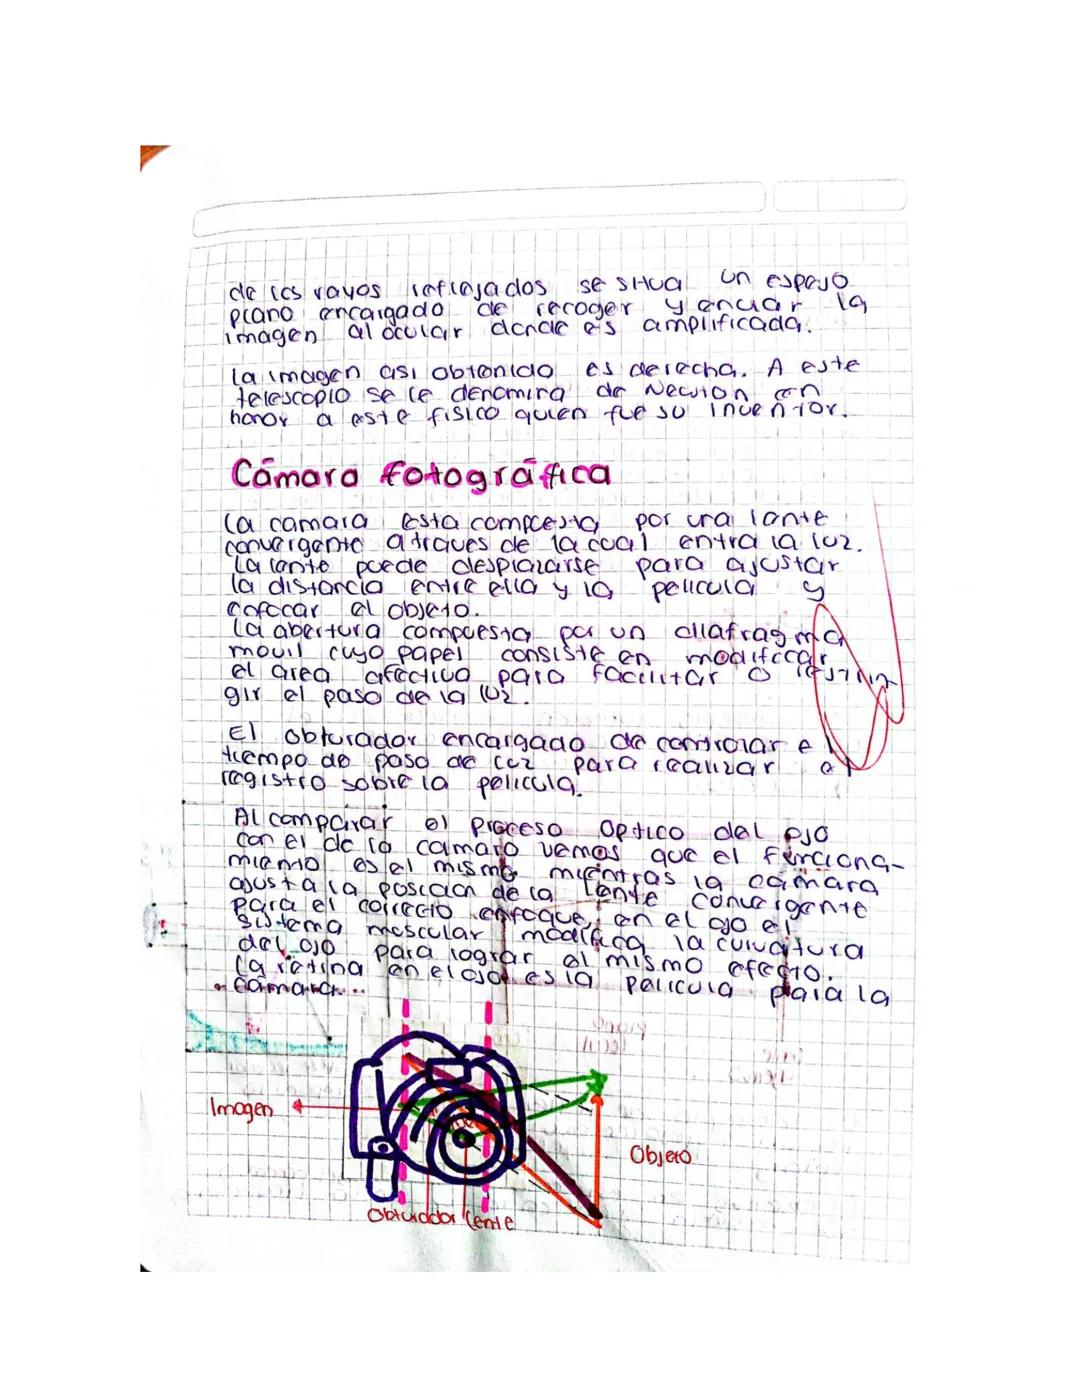 de los rayos reflejados se situa un espejo
plano encargado de recoger y enviar la
imagen al ocular donde es amplificada.
La imagen asi obtenido es derecha. A este
telescopio se le denomina de Newton en
honor a este fisico quien fue su inventor.
Cámara fotográfica
La camara esta compuesta por una lente
convergente atraves de la cual entra la luz.
La lente puede desplazarse para ajustar
la distancia entre ella y la pelicula y
enfocar el objeto.
La abertura compuesta por un diafragma
movil cuyo papel consiste en modificar
el area efectiva para facilitar o restrin-
gir el paso de la luz.
El obturador encargado de controlar el
tiempo de paso de luz para realizar el
registro sobre la pelicula.
Al comparar el proceso optico del ojo
con el de la camara vemos que el funciona-
miento es el mismo mientras la cámara
ajusta la posicion de la lente convergente
para el correcto enfoque, en el ojo el
sistema muscular modifica la curvatura
del ojo para lograr el mismo efecto.
La retina en el ojo es la pelicula para la
camara...
Imagen
Objeto
Obturador Lente